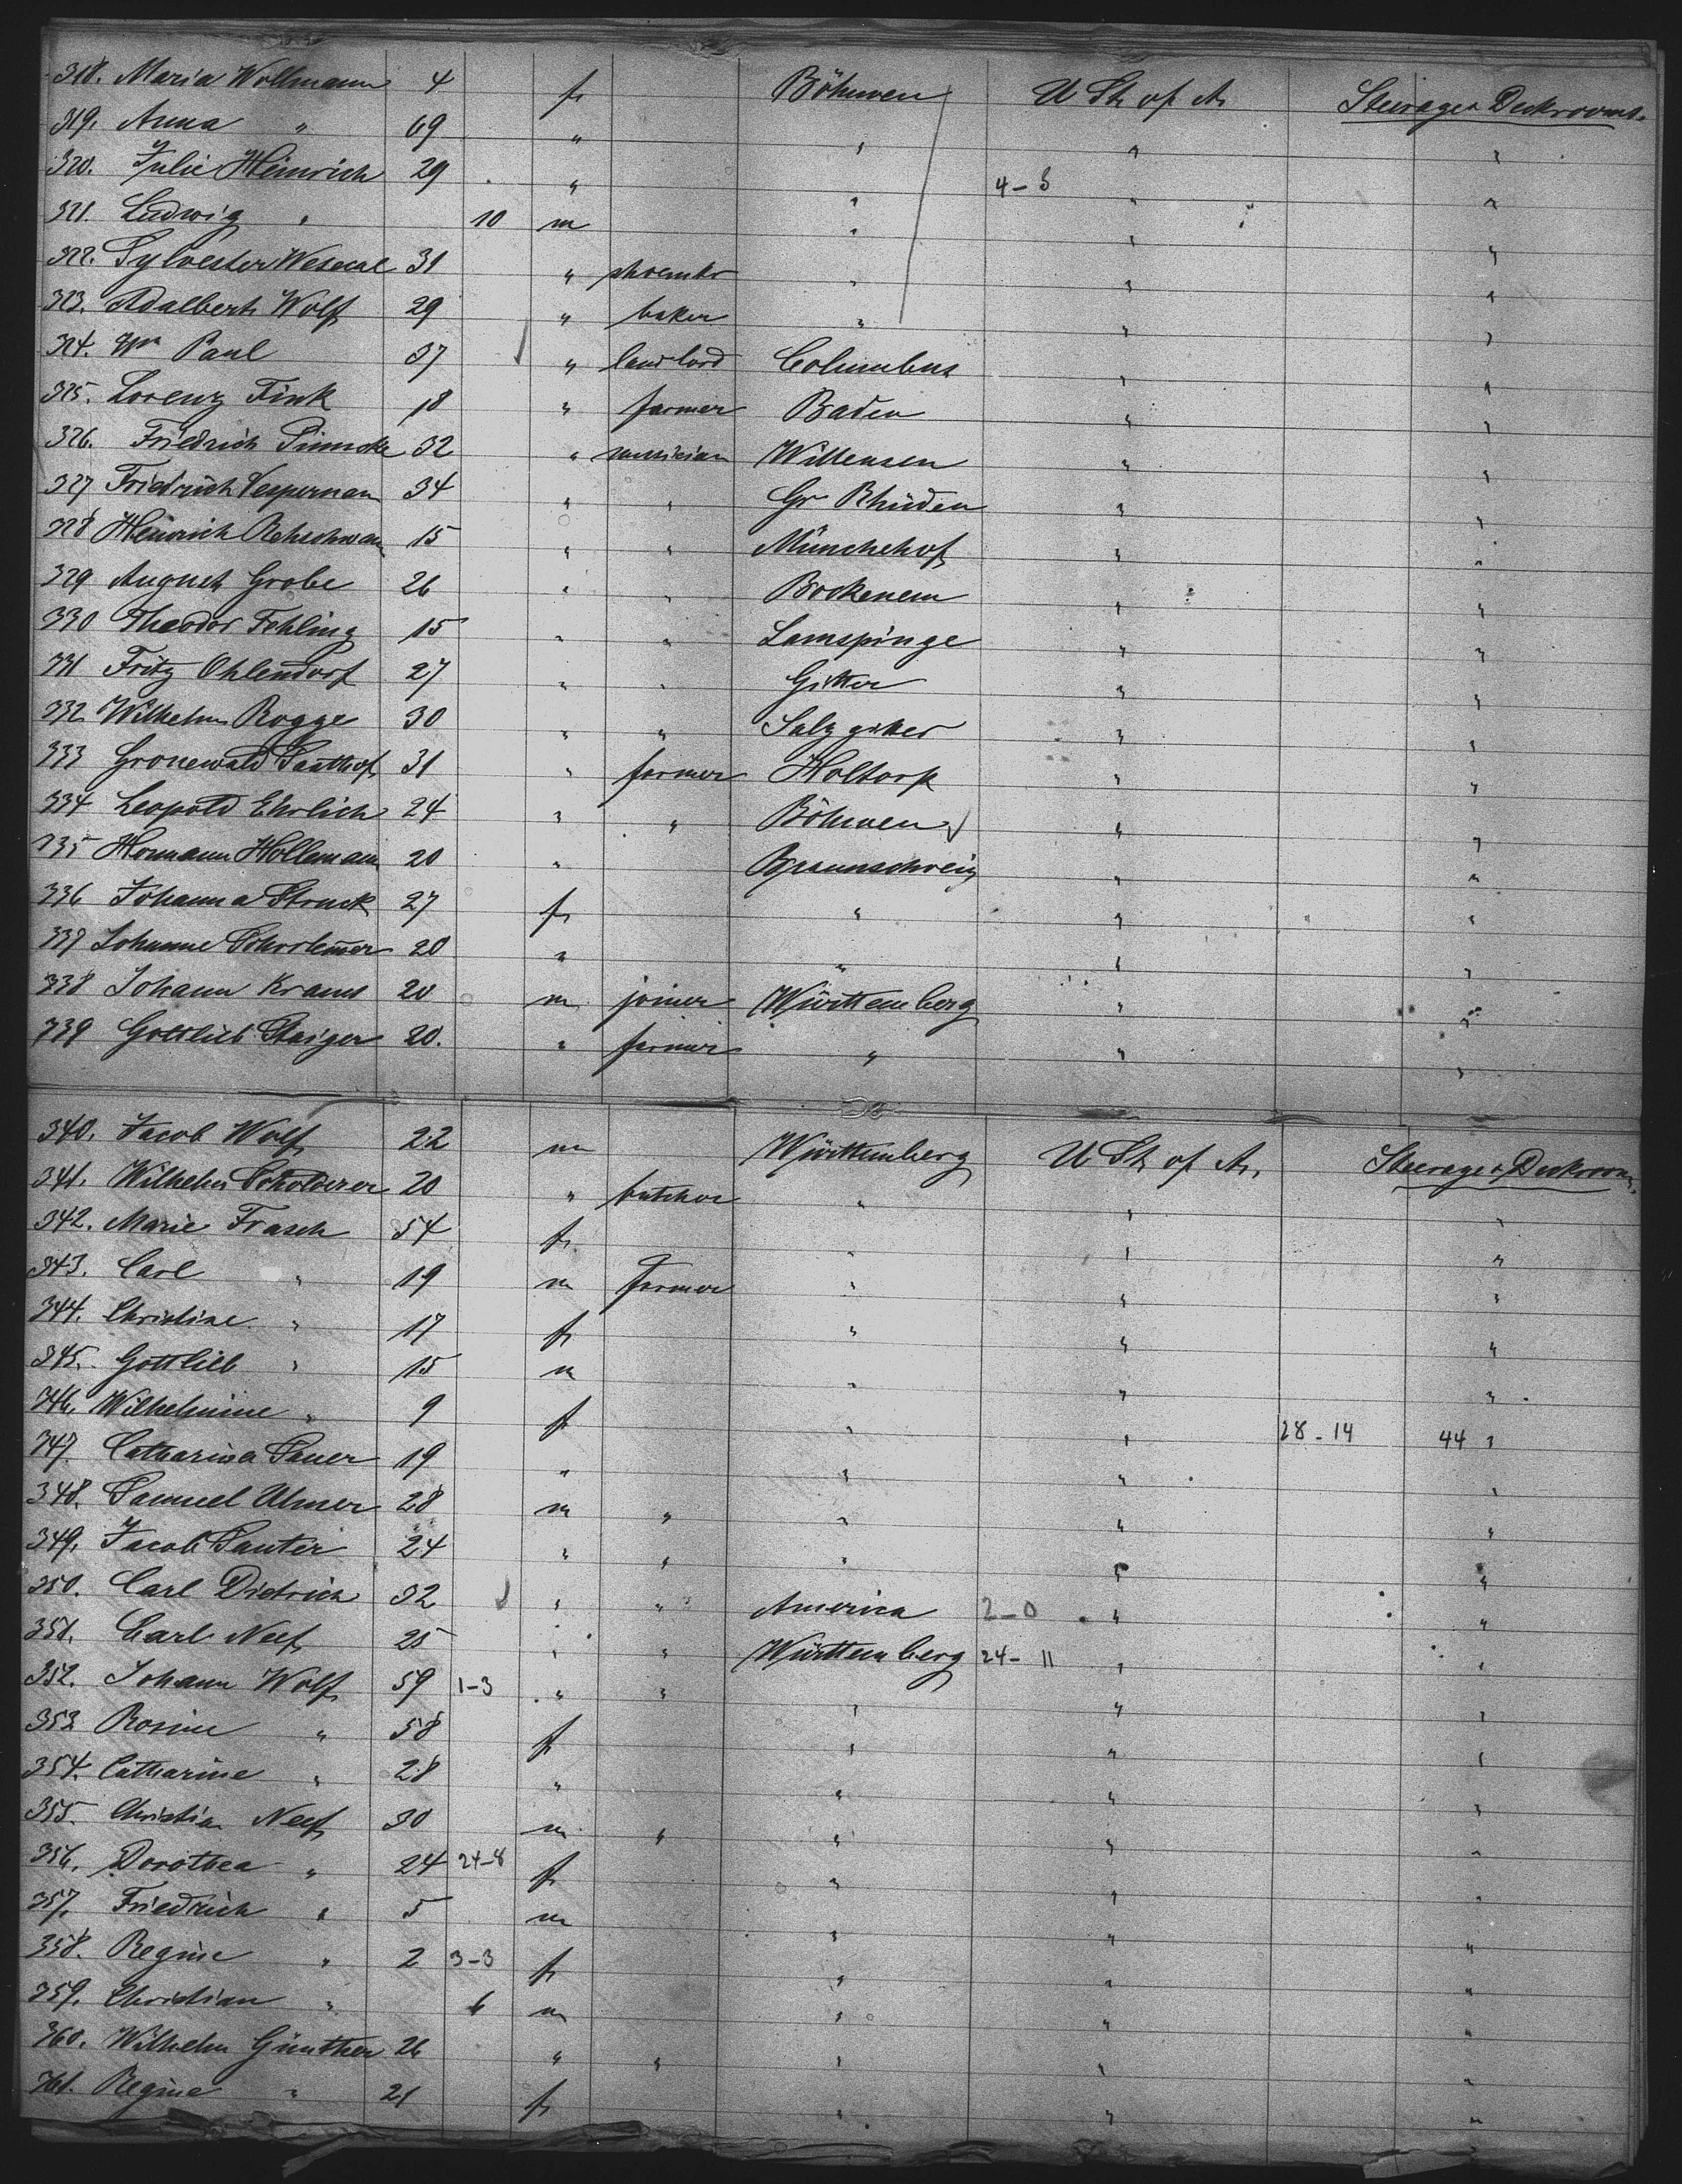 318. Maria Wollmann 4 f Böhmen U St of A. Steerage & Deckrooms.
319. Anna " 69 " " " "
320. Julie Heinrich 29 " " 4-3 " "
321. Ludwig " 10 m " " "
322. Sylvester 31 " shoemkr " " "
323. Adalbert Wolf 29 " baker " " "
324. Wm Paul 37 " landlord Columbus " "
325. Lorenz Fink 18 " farmer Baden " "
326. Friedrich 32 " musician " "
327 Friedrich Vesperman 34 " " Gr Rhüden " "
328 Heinrich 15 " " Münchehof " "
329 August Grobe 26 " " Bockenem " "
330 Theodor Fehling 15 " " Lamspinge " "
331 Fritz Ohlendorf 27 " " Gitter " "
332 Wilhelm Rogge 30 " " Salzgitter " "
333 Gronewald Saathof 31 " farmer Holtorf " "
334 Leopold Ehrlich 24 " " Böhmen " "
335 Hermann Hollemann 20 " Braunschweig " "
336 Johanna Struck 27 f " " "
337 Johanne 20 " " " "
338 Johann Kraus 20 m joiner Württemberg " "
339 Gottlieb Staiger 20. " farmer " " "
340. Jacob Wolf 22 m Württemberg U St of A. Steerage & Deckrooms.
341. Wilhelm Scholderer 20 " butcher " " "
342. Marie Frasch 54 f " " "
343. Carl " 19 m farmer " " "
344. Christine " 17 f " " "
345. Gottlieb " 15 m " " "
346. Wilhelmine " 9 f " " 28-14 44 "
347. Catharina Sauer 19 " " " "
348. Samuel Ulmer 28 m " " " "
349. Jacob Sauter 24 " " " " "
350. Carl Dietrich 32 " " America 2-0 " "
351. Carl Neef 25 " " Württemberg 24-11 " "
352. Johann Wolf 59 1-3 " " " " "
353 Rosine " 58 f " " "
354. Catharine " 28 " " " "
355. Christian Neef 30 m " " " "
356. Dorothea " 24 24-8 f " " "
357. Friedrich " 5 m " " "
358. Regine " 2 3-3 f " " "
359. Christian " 6 m " " "
360. Wilhelm Günther 26 " " " " "
361. Regine " 21 f " " "